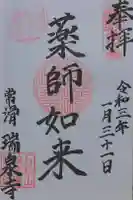 奉拝
令和三年
一月三十一日
薬師如来
常滑
瑞泉寺